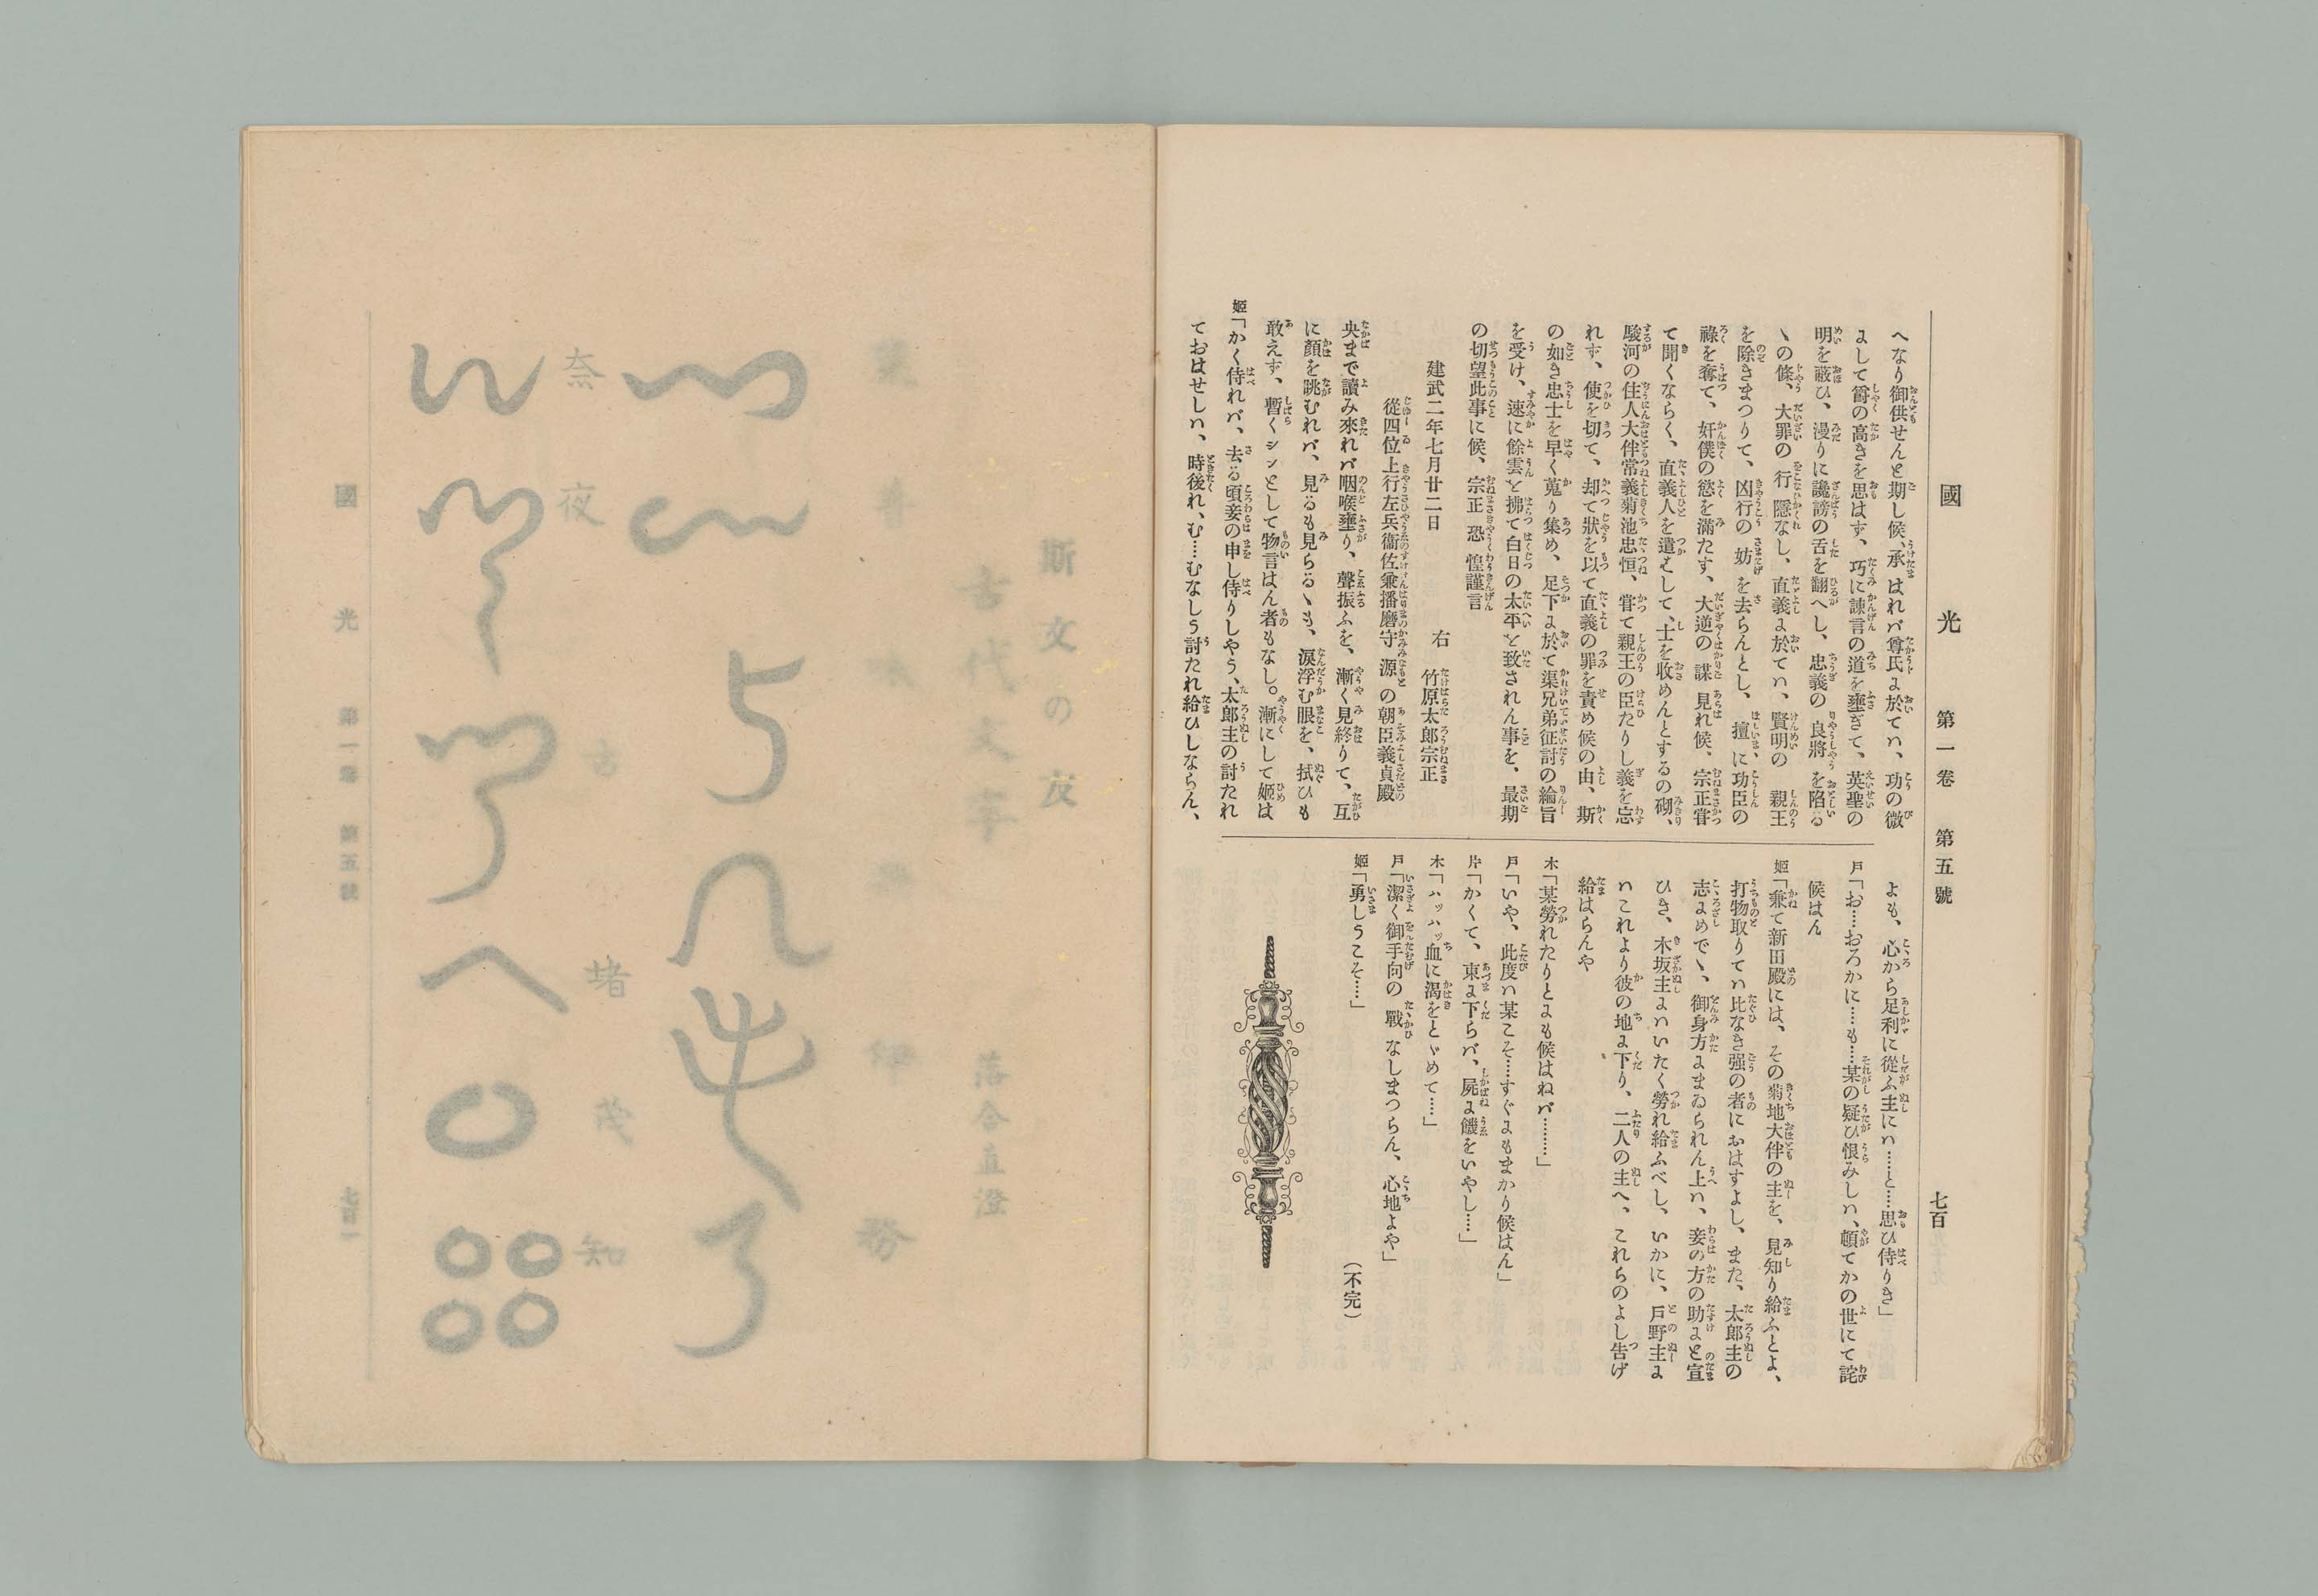 國光 第一卷 第五號 七百
へなり御供せんと期し候、承はれバ尊氏ɹ於てハ、功の微
ɹして爵の高きを思はず、巧に諫言の道を壅ぎて、英聖の
明を蔽ひ、漫りに讒謗の舌を翻へし、忠義の良將を陷る
ヽの條、大罪の行隱なし、直義ɹ於てハ、賢明の親王
を除きまつりて、凶行の妨を去らんとし、擅に功臣の
祿を奪て、奸僕の慾を滿たす、大逆の謀見れ候、宗正甞
て聞くならく、直義人を遣はして、士を收めんとするの砌、
駿河の住人大伴常義菊池忠恒、甞て親王の臣たりし義を忘
れず、使を切て、却て狀を以て直義の罪を責め候の由、斯
の如き忠士を早く蒐り集め、足下ɹ於て渠兄弟征討の綸旨
を受け、速に餘雲を拂て白日の太平を致されん事を、最期
の切望此事に候、宗正恐惶謹言
建武二年七月廿二日 右 竹原太郎宗正
從四位上行左兵衞佐兼播磨守源の朝臣義貞殿
央まで讀み來れバ咽喉壅り、聲振ふを、漸く見終りて、互
に顏を眺むれバ、見るも見らるヽも、涙浮む眼を、拭ひも
敢えず、暫くシンとして物言はん者もなし。漸にして姫は
姫「かく侍れバ、去る頃妾の申し侍りしやう、太郎主の討たれ
ておはせしハ、時後れ、む……むなしう討たれ給ひしならん、
よも、心から足利に從ふ主にハ……と……思ひ侍りき」
戸「お……おろかに……も……某の疑ひ恨みしハ、頓てかの世にて詫
候はん
姫「兼て新田殿には、その菊地大伴の主を、見知り給ふとよ、
打物取りてハ比なき强の者におはすよし、また、太郎主の
志ɹめでヽ、御身方ɹまゐられん上ハ、妾の方の助ɹと宣
ひき、木坂主ɹハいたく勞れ給ふべし、いかに、戸野主ɹ
ハこれより彼の地ɹ下り、二人の主へ、これらのよし告げ
給はらんや
木「某勞れたりとɹも候はねバ………」
戸「いや、此度ハ某こそ……すぐɹもまかり候はん」
片「かくて、東ɹ下らバ、屍ɹ饑をいやし……」
木「ハッハッ血に渴をとゞめて……」
戸「潔く御手向の戰なしまつらん、心地よや」
姫「勇しうこそ……」
（不完）
斯文の友
古代文字 落合直澄
奈夜
古堵茂知
國光 第一卷 第五號